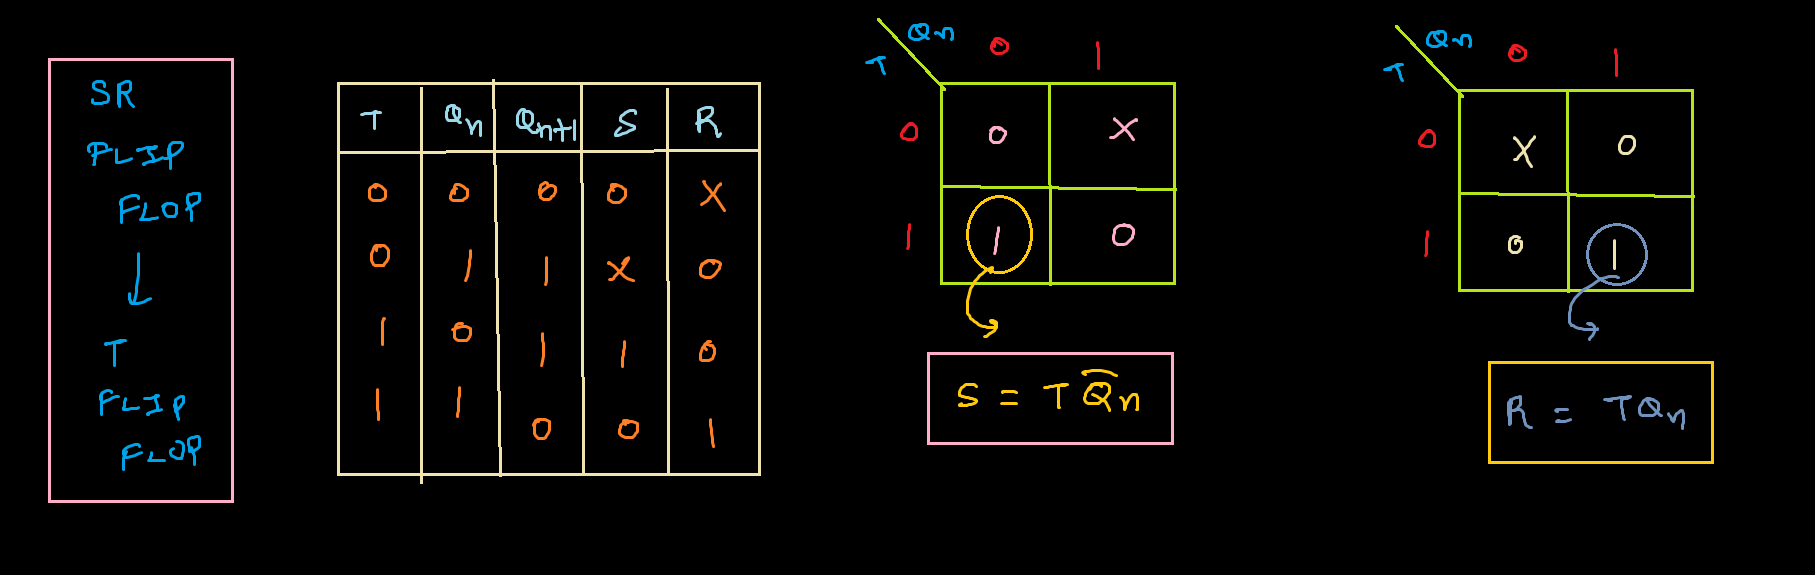 SR
FLIP
FLOP
↓
T
FLIP
FLOP
T Qn Qn+1 S R
0 0 0 0 X
0 1 1 X 0
1 0 1 1 0
1 1 0 0 1
Qn
T
0 1
0 0 X
1 1 0
S = T Q̅n
Qn
T
0 1
0 X 0
1 0 1
R = TQn